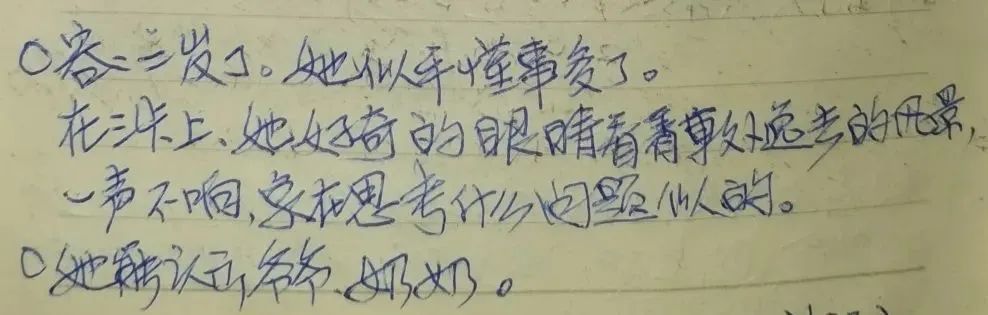 ○容容三岁了。她似乎懂事多了。
在三卡上、她好奇的眼睛看着车外逝去的风景,
一声不响,象在思考什么问题似的。
○她能认示爷爷、奶奶。